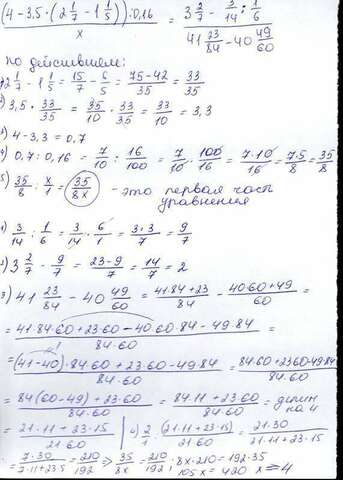 (4 - 3,5 · (2 1/7 - 1 1/5)) : 0,16 / x = (3 2/7 - 3/14 : 1/6) / (41 23/84 - 40 49/60)
по действиям:
1) 2 1/7 - 1 1/5 = 15/7 - 6/5 = (75-42)/35 = 33/35
2) 3,5 · 33/35 = 35/10 · 33/35 = 33/10 = 3,3
3) 4 - 3,3 = 0,7
4) 0,7 : 0,16 = 7/10 : 16/100 = 7/10 · 100/16 = 7·10/16 = 7·5/8 = 35/8
5) 35/8 : x/1 = 35/8x - это первая часть
уравнения
1) 3/14 : 1/6 = 3/14 · 6/1 = 3·3/7 = 9/7
2) 3 2/7 - 9/7 = (23-9)/7 = 14/7 = 2
3) 41 23/84 - 40 49/60 = (41·84+23)/84 - (40·60+49)/60 =
= (41·84·60 + 23·60 - 40·60·84 - 49·84)/(84·60) =
= ((41-40)·84·60 + 23·60 - 49·84)/(84·60) = (84·60 + 23·60 - 49·84)/(84·60)
= (84(60-49) + 23·60)/(84·60) = (84·11 + 23·60)/(84·60) = делим на 4
= (21·11 + 23·15)/(21·60) | 4) 2/1 : (21·11 + 23·15)/(21·60) = 21·30/(21·11 + 23·15)
= 7·30/(7·11+23·5) = 210/192 => 35/8x = 210/192; 8x·210 = 192·35
105x = 420 x = 4